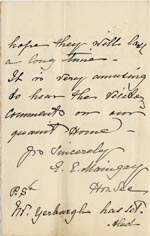 hope they will last
a long time -
It is very amusing
to hear the
comments on our
quaint home -
Yrs Sincerely
E. E. Maingay
Hon Sec
P.S.
Mr. Yerburgh has set.